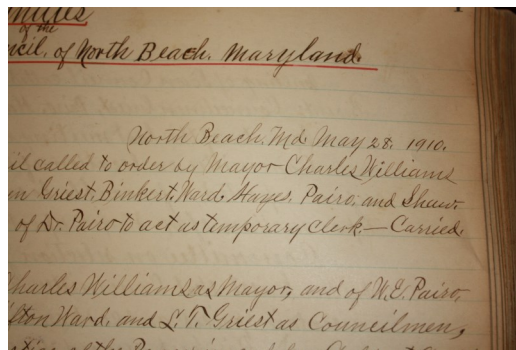 of the
ncil, of North Beach. Maryland.
North Beach. Md May 28. 1910.
il called to order by Mayor Charles Williams
n Griest. Binkert. Ward. Hayes. Pairo. and Shaw.
of Dr. Pairo to act as temporary Clerk. — Carried.
Charles Williams as Mayor, and of W. E. Pairo,
lton Ward. and L. T. Griest as Councilmen,